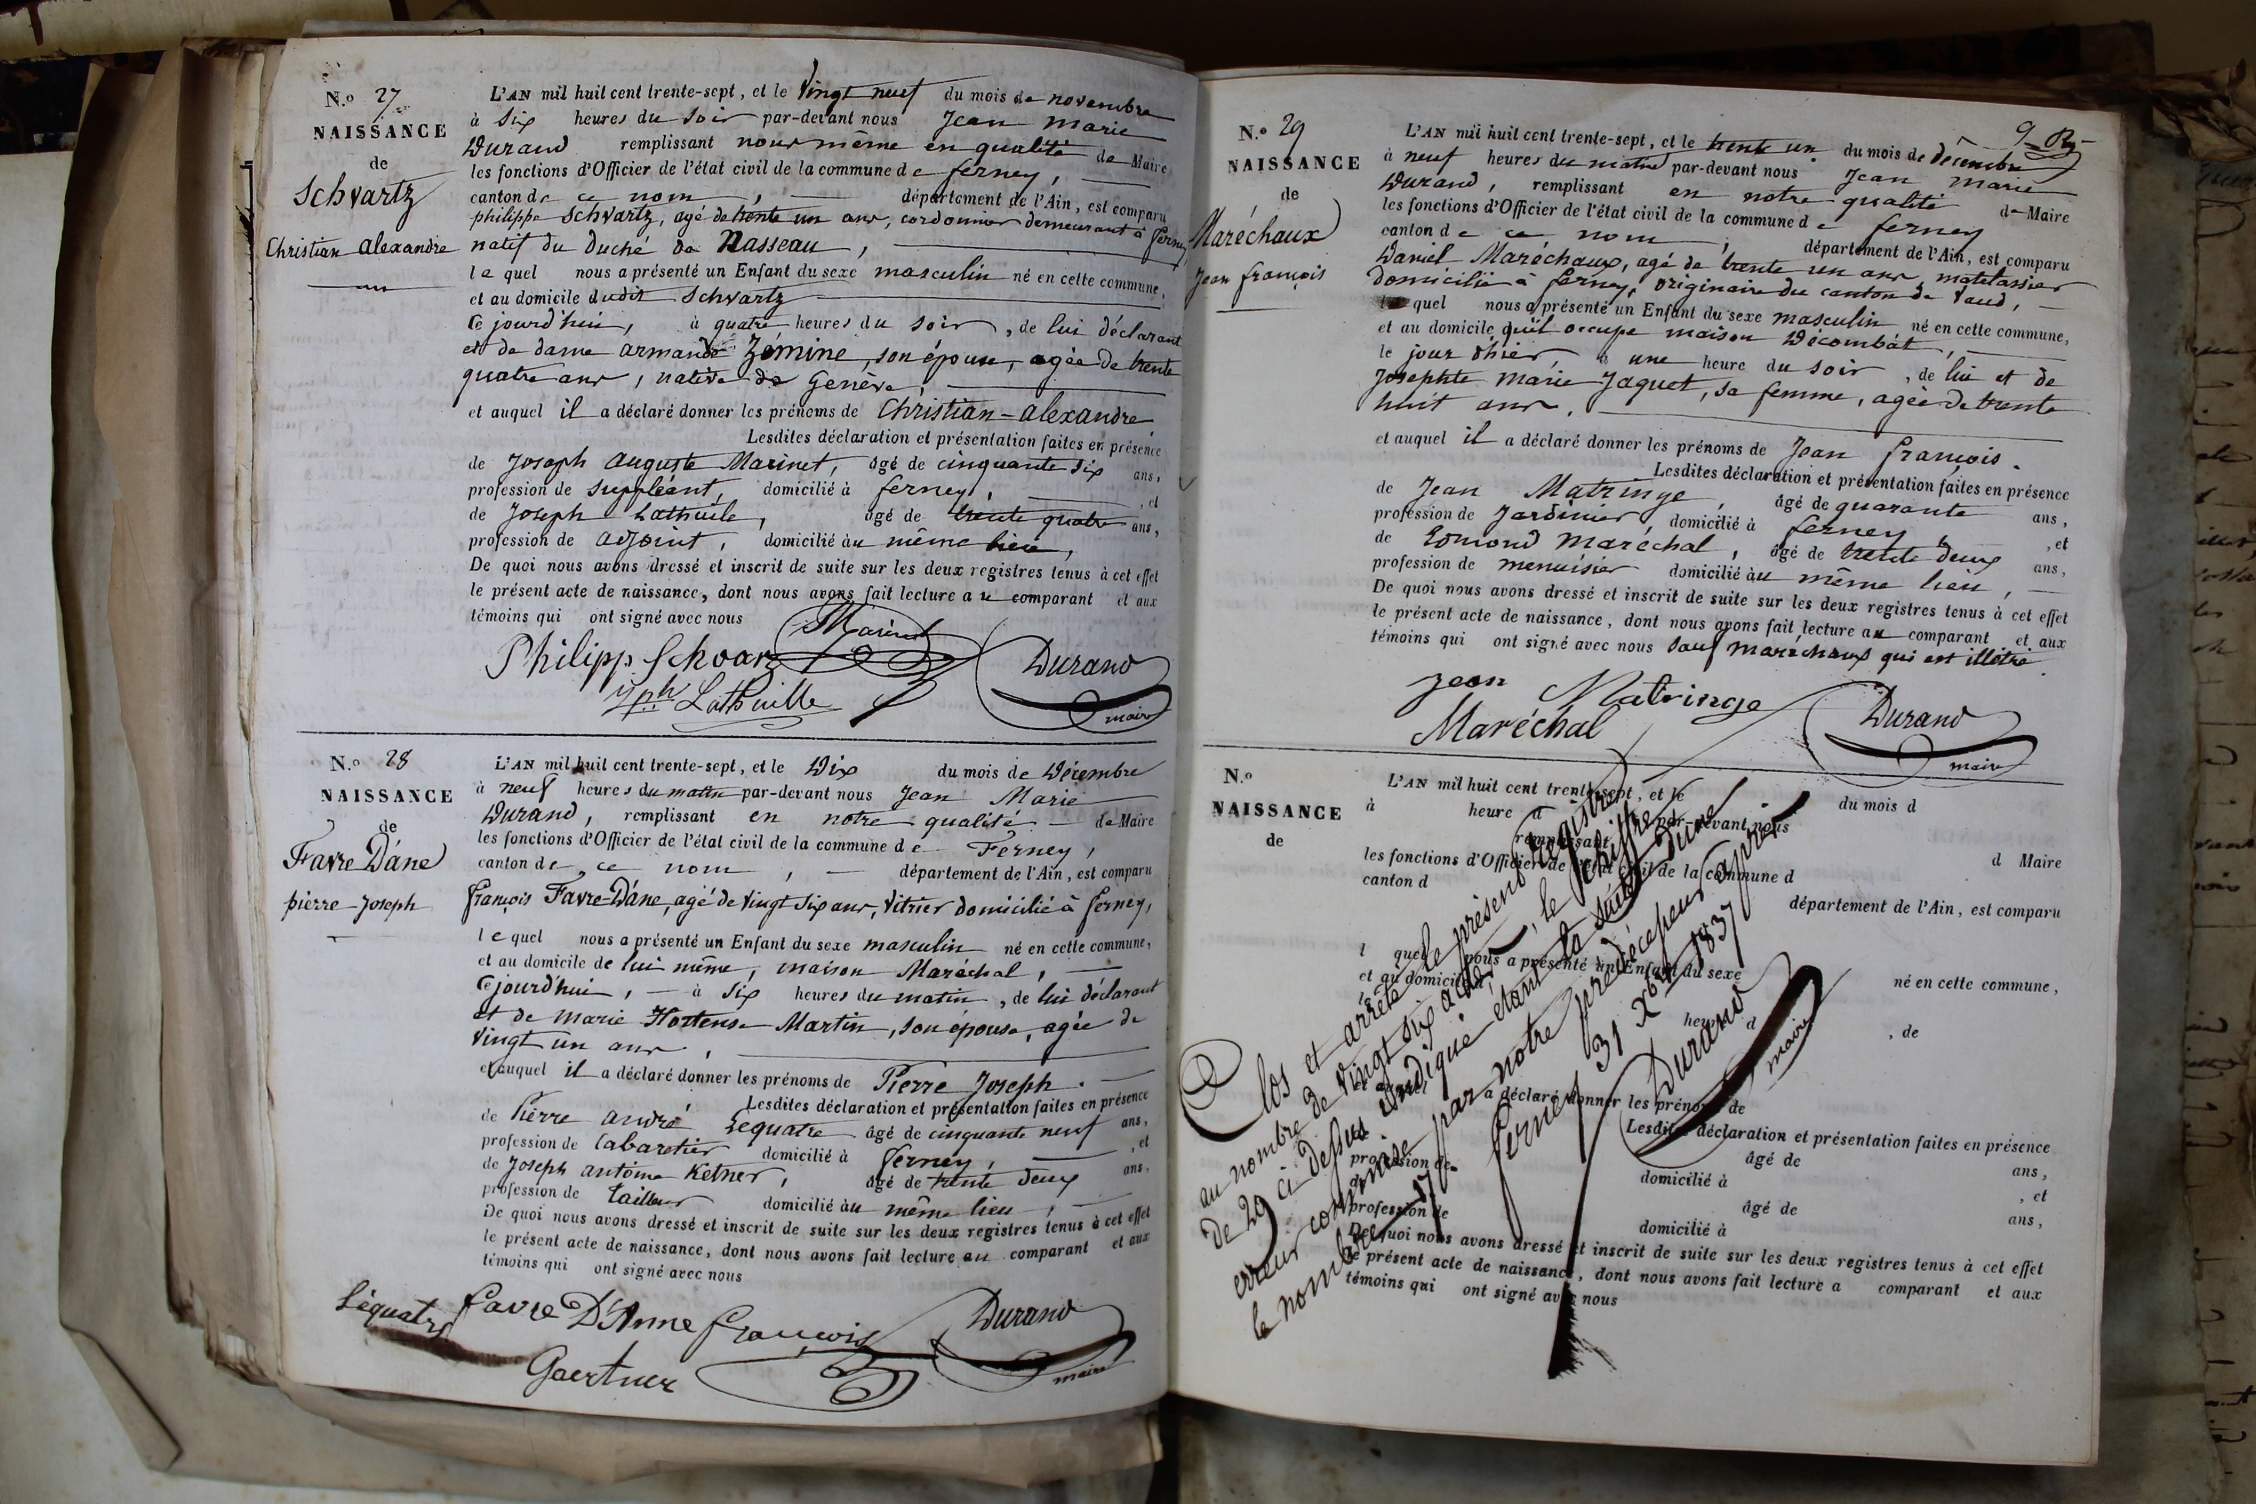 N.o 27
NAISSANCE
de
Schvartz
Christian alexandre
L'AN mil huit cent trente-sept, et le Vingt neuf du mois de novembre
à Six heures du Soir par-devant nous Jean Marie
Durand remplissant nous même en qualité de Maire
les fonctions d'Officier de l'état civil de la commune de ferney,
canton de ce nom, département de l'Ain, est comparu
philippe Schvartz, agé de trente un ans, cordonnier demeurant à ferney
natif du duché de Nasseau,
lequel nous a présenté un Enfant du sexe masculin né en cette commune,
et au domicile dudit Schvartz
Ce jourd'hui, à quatre heures du Soir, de lui déclarant
et de dame armande Zémine, son épouse, agée de trente
quatre ans, native de Genève,
et auquel il a déclaré donner les prénoms de Christian-alexandre
Lesdites déclaration et présentation faites en présence
de Joseph auguste Marinet, âgé de cinquante six ans,
profession de Suppléant, domicilié à ferney, et
de Joseph Lathuile, âgé de trente quatre ans,
profession de adjoint, domicilié au même lieu,
De quoi nous avons dressé et inscrit de suite sur les deux registres tenus à cet effet
le présent acte de naissance, dont nous avons fait lecture au comparant et aux
témoins qui ont signé avec nous
Marinet
Philipp Schvarz
Durand
jph Lathuille
maire
N.o 28
NAISSANCE
de
Favre Dáne
pierre-Joseph
L'AN mil huit cent trente-sept, et le Dix du mois de Décembre
à neuf heures du matin par-devant nous Jean Marie
Durand, remplissant en notre qualité de Maire
les fonctions d'Officier de l'état civil de la commune de Ferney,
canton de ce nom, département de l'Ain, est comparu
françois Favre-Dáne, agé de Vingt Six ans, Vitrier domicilié à ferney,
lequel nous a présenté un Enfant du sexe masculin né en cette commune,
et au domicile de lui même, maison Maréchal,
Cejourd'hui, à Six heures du matin, de lui déclarant
et de marie Hortense Martin, son épouse, agée de
Vingt un ans,
et auquel il a déclaré donner les prénoms de Pierre Joseph.
Lesdites déclaration et présentation faites en présence
de Pierre andré Lequatre âgé de cinquante neuf ans,
profession de Cabaretier domicilié à ferney, et
de Joseph antoine Ketner, âgé de trente deux ans,
profession de tailleur domicilié au même lieu,
De quoi nous avons dressé et inscrit de suite sur les deux registres tenus à cet effet
le présent acte de naissance, dont nous avons fait lecture au comparant et aux
témoins qui ont signé avec nous
Léquatre favre D'Anne françois
Durand
Gaertner
maire
9
N.o 29
NAISSANCE
de
Maréchaux
Jean françois
L'AN mil huit cent trente-sept, et le trente un du mois de décembre
à neuf heures du matin par-devant nous Jean Marie
Durand, remplissant en notre qualité de Maire
les fonctions d'Officier de l'état civil de la commune de ferney
canton de ce nom, département de l'Ain, est comparu
Daniel Maréchaux, agé de trente un ans, matelassier
domicilié à ferney, originaire du canton de Vaud,
lequel nous a présenté un Enfant du sexe masculin né en cette commune,
et au domicile qu'il occupe maison Décombat,
le jour d'hier, à une heure du soir, de lui et de
Josephte marie Jaquet, sa femme, agée de trente
huit ans,
et auquel il a déclaré donner les prénoms de Jean françois.
Lesdites déclaration et présentation faites en présence
de Jean Matringe, âgé de quarante ans,
profession de Jardinier, domicilié à ferney, et
de Edmond Maréchal, âgé de trente deux ans,
profession de menuisier domicilié au même lieu,
De quoi nous avons dressé et inscrit de suite sur les deux registres tenus à cet effet
le présent acte de naissance, dont nous avons fait lecture au comparant et aux
témoins qui ont signé avec nous sauf maréchaux qui est illétré.
Jean Matringe
Maréchal
Durand
maire
N.o
NAISSANCE
de
L'AN mil huit cent trente-sept, et le du mois d
à heure d par-devant nous
remplissant d Maire
les fonctions d'Officier de l'état civil de la commune d
canton d département de l'Ain, est comparu
l quel nous a présenté un Enfant du sexe né en cette commune,
et au domicile
le heure d , de
et auquel a déclaré donner les prénoms de
Lesdites déclaration et présentation faites en présence
de âgé de ans,
profession de domicilié à , et
de âgé de ans,
profession de domicilié à
De quoi nous avons dressé et inscrit de suite sur les deux registres tenus à cet effet
le présent acte de naissance, dont nous avons fait lecture a comparant et aux
témoins qui ont signé avec nous
Clos et arrêté le présent Registre
au nombre de Vingt Six actes, le chiffre
de 29 ci-dessus indiqué étant la suite d'une
erreur commise par notre prédécesseur après
le nombre 17. ferney 31 Xbre 1837
Durand
maire